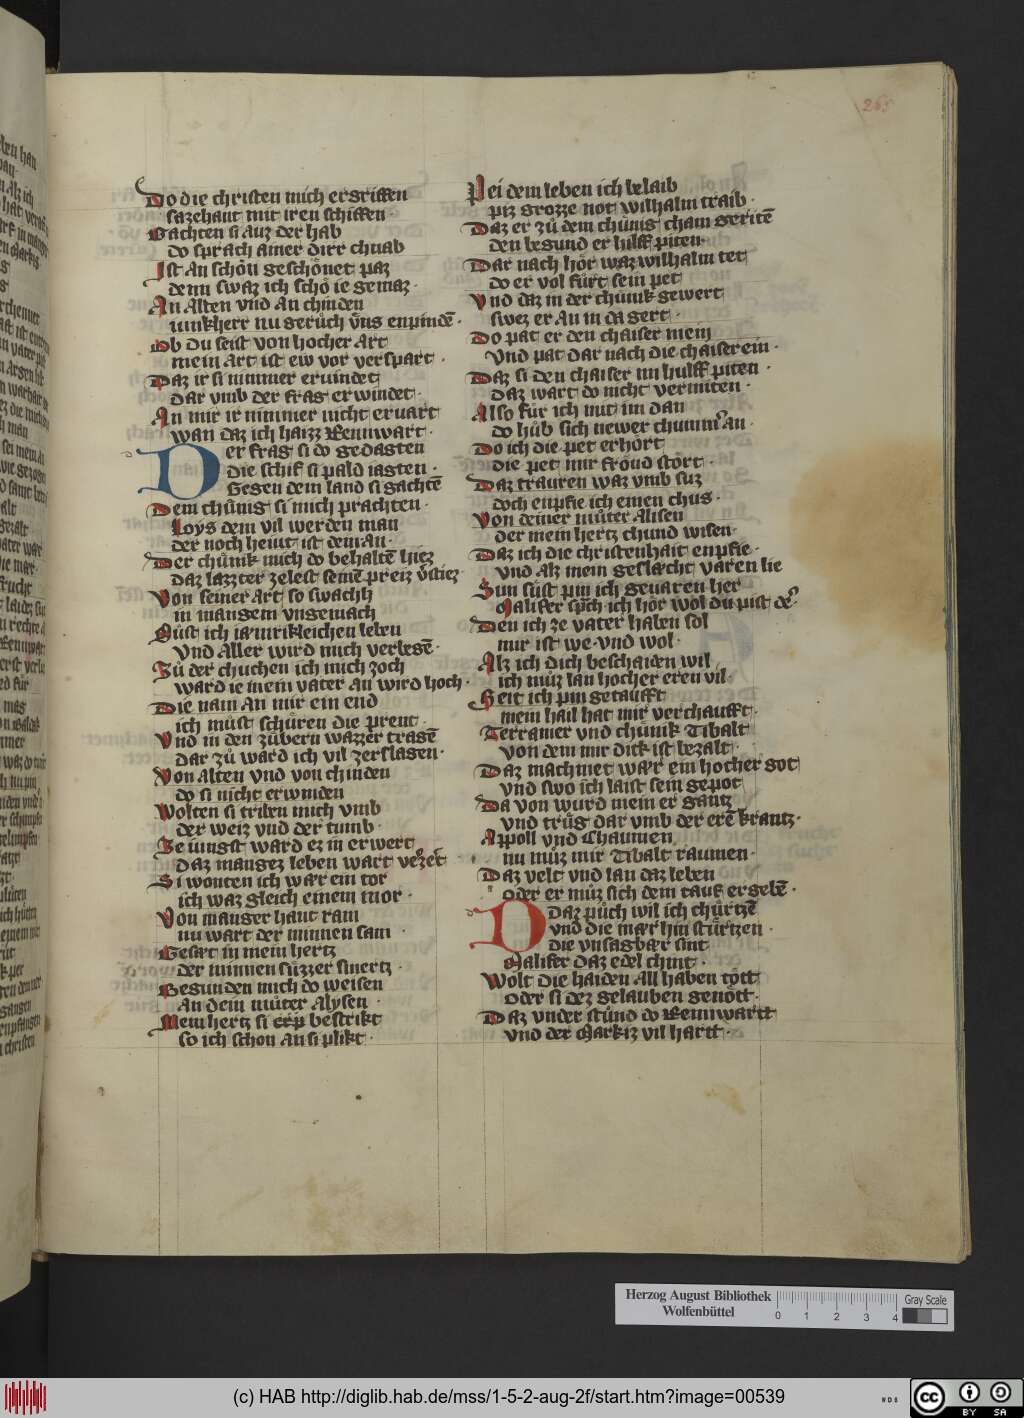 265
Do die christen mich ergriffen
sazehant mit iren schiffen
Gachten si auz der hab
do sprach ainer dirr chnab
Ist an schôn geschônet paz
denn swaz ich schô ie gemaz ·
An Alten vnd an chinden
iunkherr nu gerûch vns enpinden ·
Ob du seist von hocher art
mein art ist ew vor verspart ·
Daz ir si nimmer ervindet
dar vmb der frag erwindet ·
An mir ir nimmer nicht ervart
wan daz ich haizz Rennwart ·
Der frag si do gedagten
die schif si pald iagten ·
Gegen dem land si gachtē
Dem chûnig si mich prachten ·
Loys dem vil werden man
der noch hewt ist dem an ·
Der chûnik mich do behaltē hiez
daz lazzter zelest seinē preiz
Von seiner art so swachh
in mangem vngemach
Mûst ich iæmrikleichen leben
vnd aller wird mich verlegē ·
Zû der chuchen ich mich zoch
ward ie mein vater an wird hoch ·
Die nam an mir ein end
ich mûst schûren die prent ·
Vnd in den zûbern wazzer tragē
dar zû ward ich vil zerslagen ·
Von alten vnd von chinden
do si nicht erwinden
Wolten si triben mich vmb
der weiz vnd der tumb ·
Ze iungst ward ez in erwert
daz manges leben wart verzert
Si wonten ich wær ein tor
ich waz gleich einem mor ·
Von manger hant ram
nu wart der minnen sam ·
Gesæt in mein hertz
der minnen sûzzer smertz ·
Begunden mich do weisen
an dein mûter Alysen ·
Mein hertz si bestrikt
so ich schon an si plikt ·
Pei dem leben ich belaib
piz grozze not wilhalm traib ·
Daz er zû dem chûnig cham geritē
den begund er hilff piten ·
Dar nach hôr waz wilhalm tet
do er vol fûrt sein pet
Vnd daz in der chûnik gewert
swez er an in da gert ·
Do pat er den chaiser mein
vnd pat dar nach die chaiserein ·
Daz si den chaiser im hulff piten ·
daz wart do nicht vermiten ·
Also fûr ich mit im dan
do hûb sich newer chummer an ·
Do ich die pet erhôrt
die pet mir frôud stôrt ·
Daz trauren waz vmb suz
doch enpfie ich einen chus ·
Von deiner mûter Alisen
der mein hertz chund wisen ·
Daz ich die christenhait enpfie ·
vnd alz mein geslæcht varen lie
Sun sust pin ich gevaren her
Malifer sprch ich hôr wol du pist der
Den ich ze vater haben sol
mir ist we · vnd wol ·
Alz ich dich beschaiden wil
ich mûz lan hocher eren vil ·
Seit ich pin getaufft
mein hail hat mir verchaufft ·
Terramer vnd chûnik Tibalt
von dem mir dick ist bezalt ·
Daz machmet wær ein hocher got
vnd swo ich laist sein gepot
Da von wurd mein er gantz
vnd trûg dar vmb der erē krantz ·
Appoll vnd Chaumen
nu mûz mir Tibalt raumen ·
Daz velt vnd lan daz leben
oder er mûz sich dem tauf ergebē ·
Daz pûch wil ich chûrtzē
vnd die mær hin stûrtzen ·
die vnsagbær sint
Malifer daz edel chint ·
Wolt die haiden all haben tôtt
oder si dez gelauben genôtt ·
Daz vnder stûnd do Rennwartt
vnd der Markiz vil hartt ·
Herzog August Bibliothek
Wolfenbüttel
0 1 2 3 4
Gray Scale
(c) HAB http://diglib.hab.de/mss/1-5-2-aug-2f/start.htm?image=00539
cc BY SA